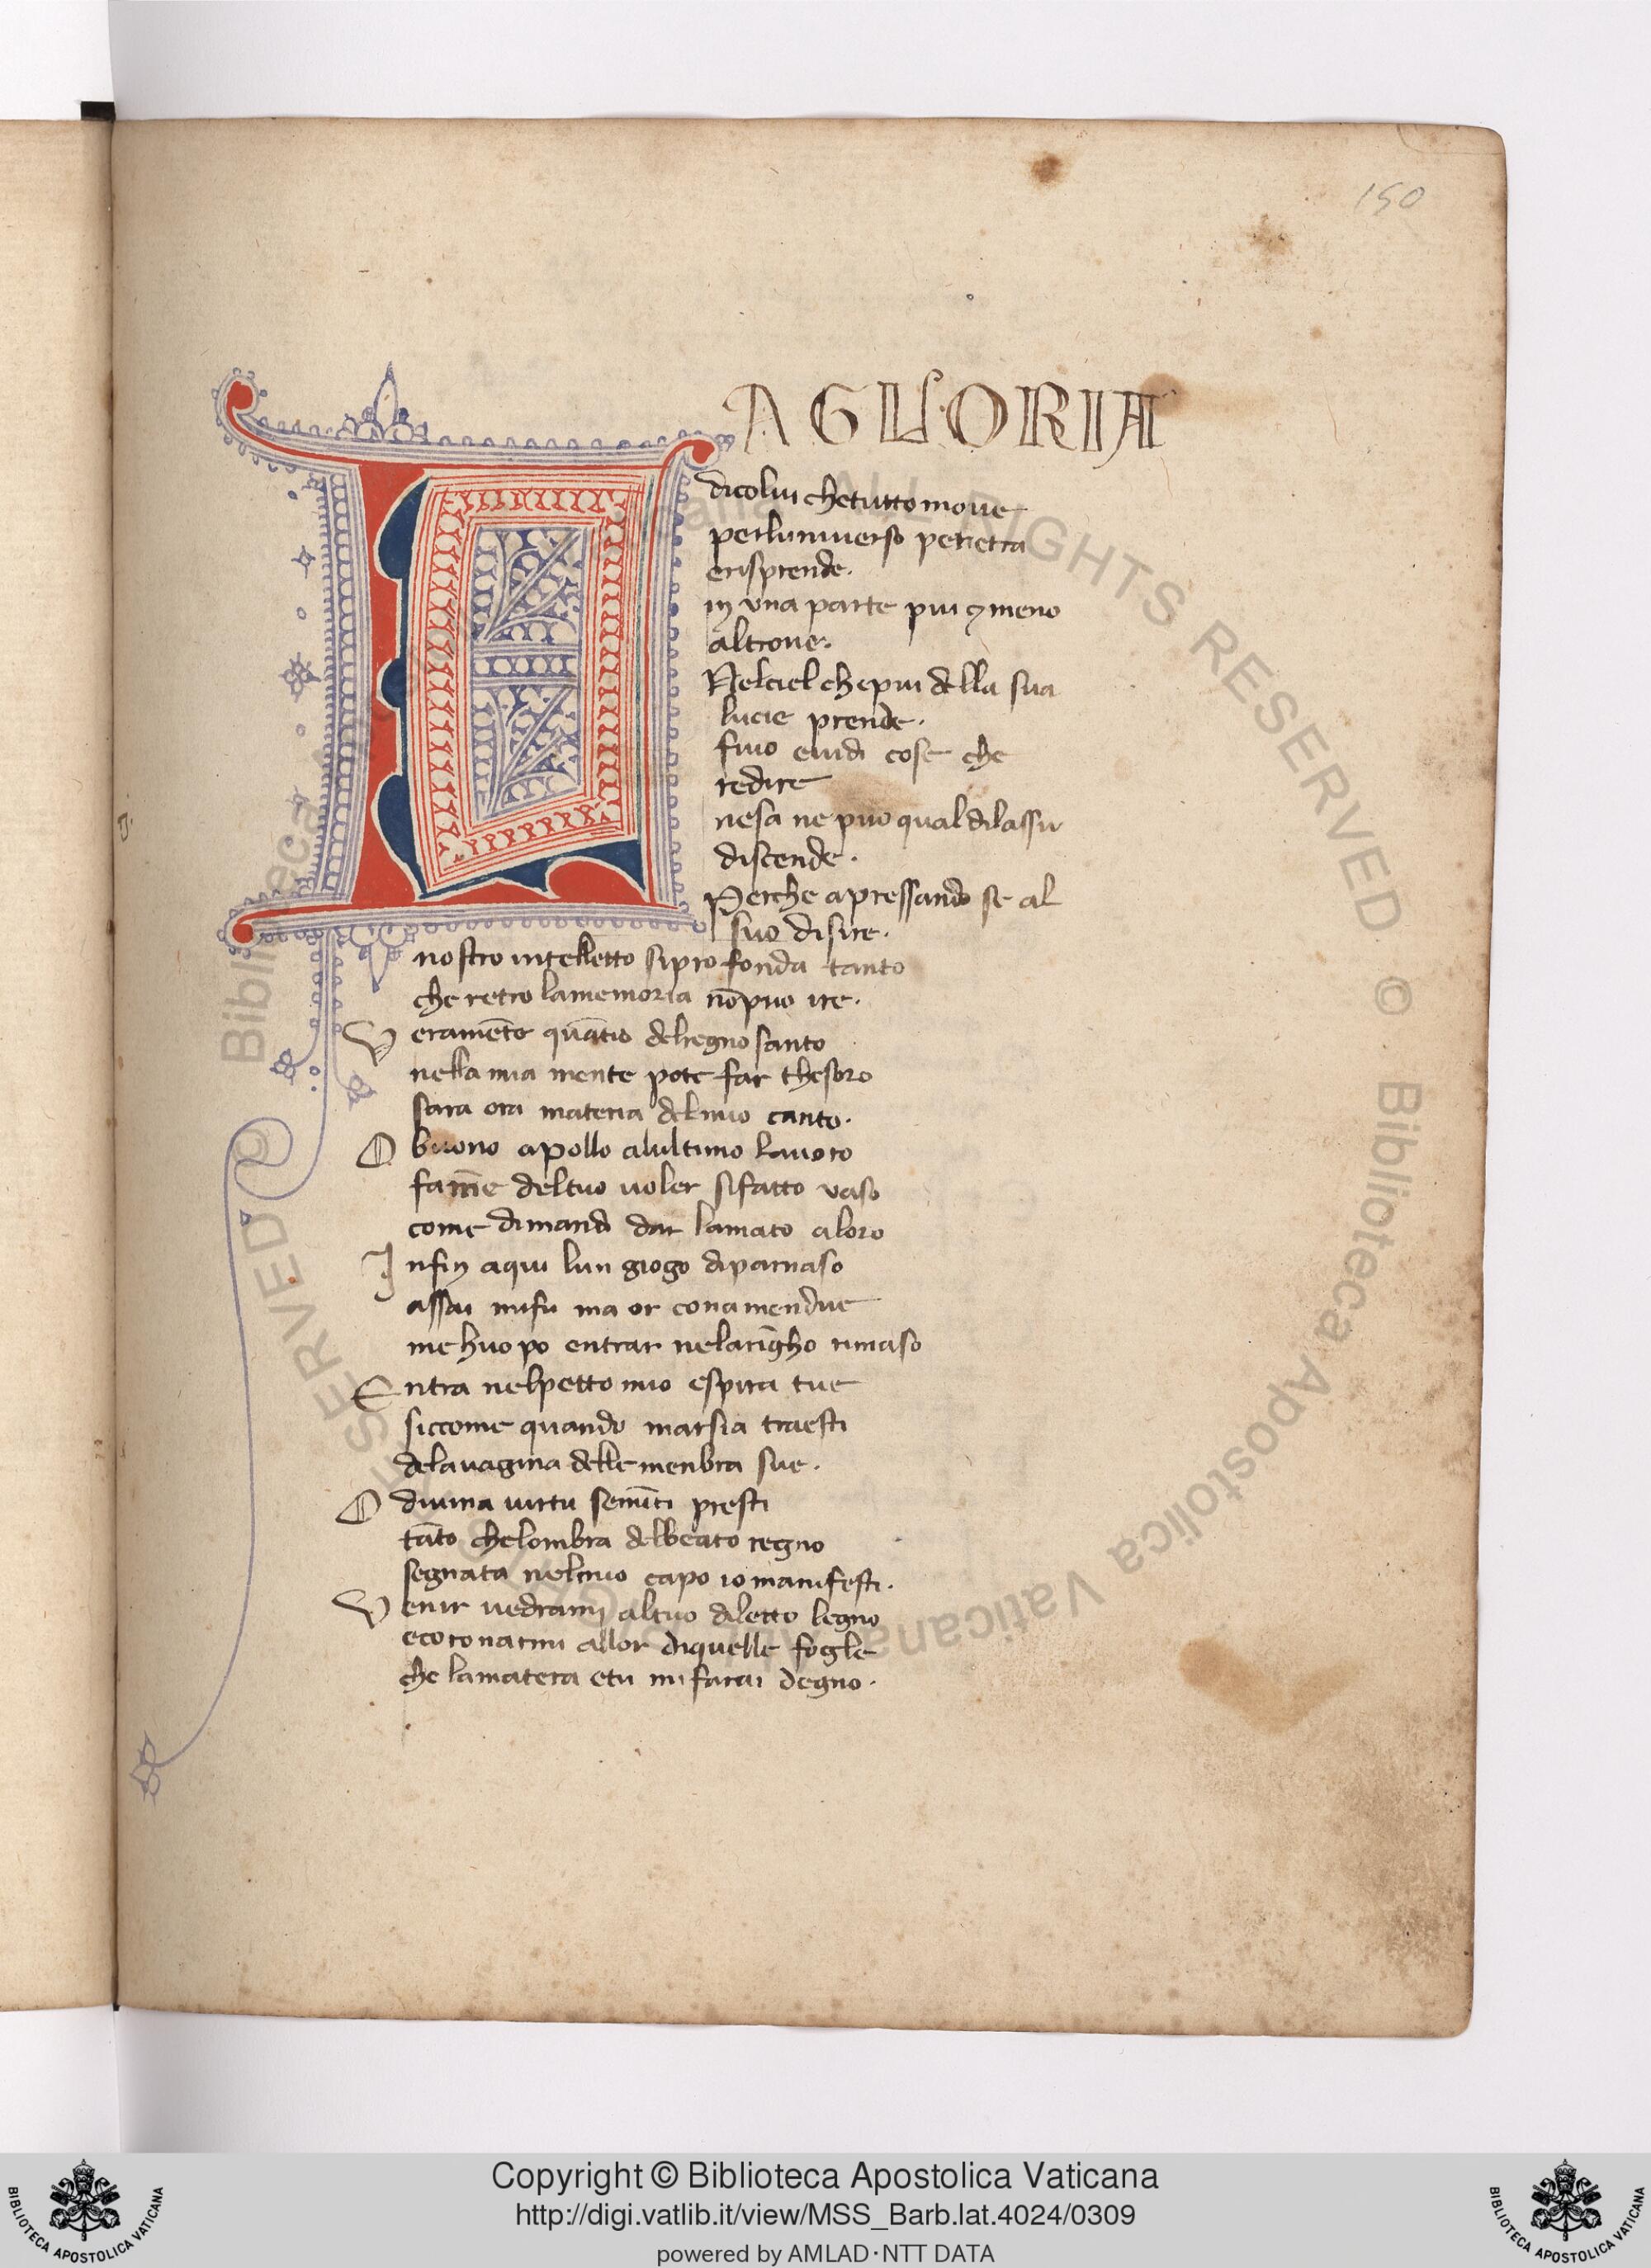 150
LA GLLORIA
dicolui chetutto moue
perluniuerso penetra
erisprende.
in vna parte piu ⁊ meno
altroue.
Nelciel chepiu della sua
lucie prende.
fuio euidi cose che
redire
nesa ne puo qual dilassu
discende.
Perche apressando se al
suo disire.
nostro intelletto siprofonda tanto
che retro lamemoria nōpuo ire.
Veramēte quāto delregno santo
nella mia mente pote far thesoro
sara ora materia delmio canto.
O buono apollo alultimo lauoro
fam̄e deltuo uoler sifatto vaso
come dimandi dar lamato aloro
Infin aqui lun giogo diparnaso
assai mifu ma or conamendue
me huopo entrar nelarīgho rimaso
Entra nelpetto mio espira tue
siccome quando marsia traesti
delauagina delle menbra sue.
O diuina uirtu semīti presti
tāto chelombra delbeato regno
segnata nelmio capo io manifesti.
Venir uedrami altuo diletto legno
ecoronarmi allor diquelle fogle
che lamatera etu mi farai degno.
Copyright © Biblioteca Apostolica Vaticana
http://digi.vatlib.it/view/MSS_Barb.lat.4024/0309
powered by AMLAD·NTT DATA
BIBLIOTECA APOSTOLICA VATICANA
BIBLIOTECA APOSTOLICA VATICANA